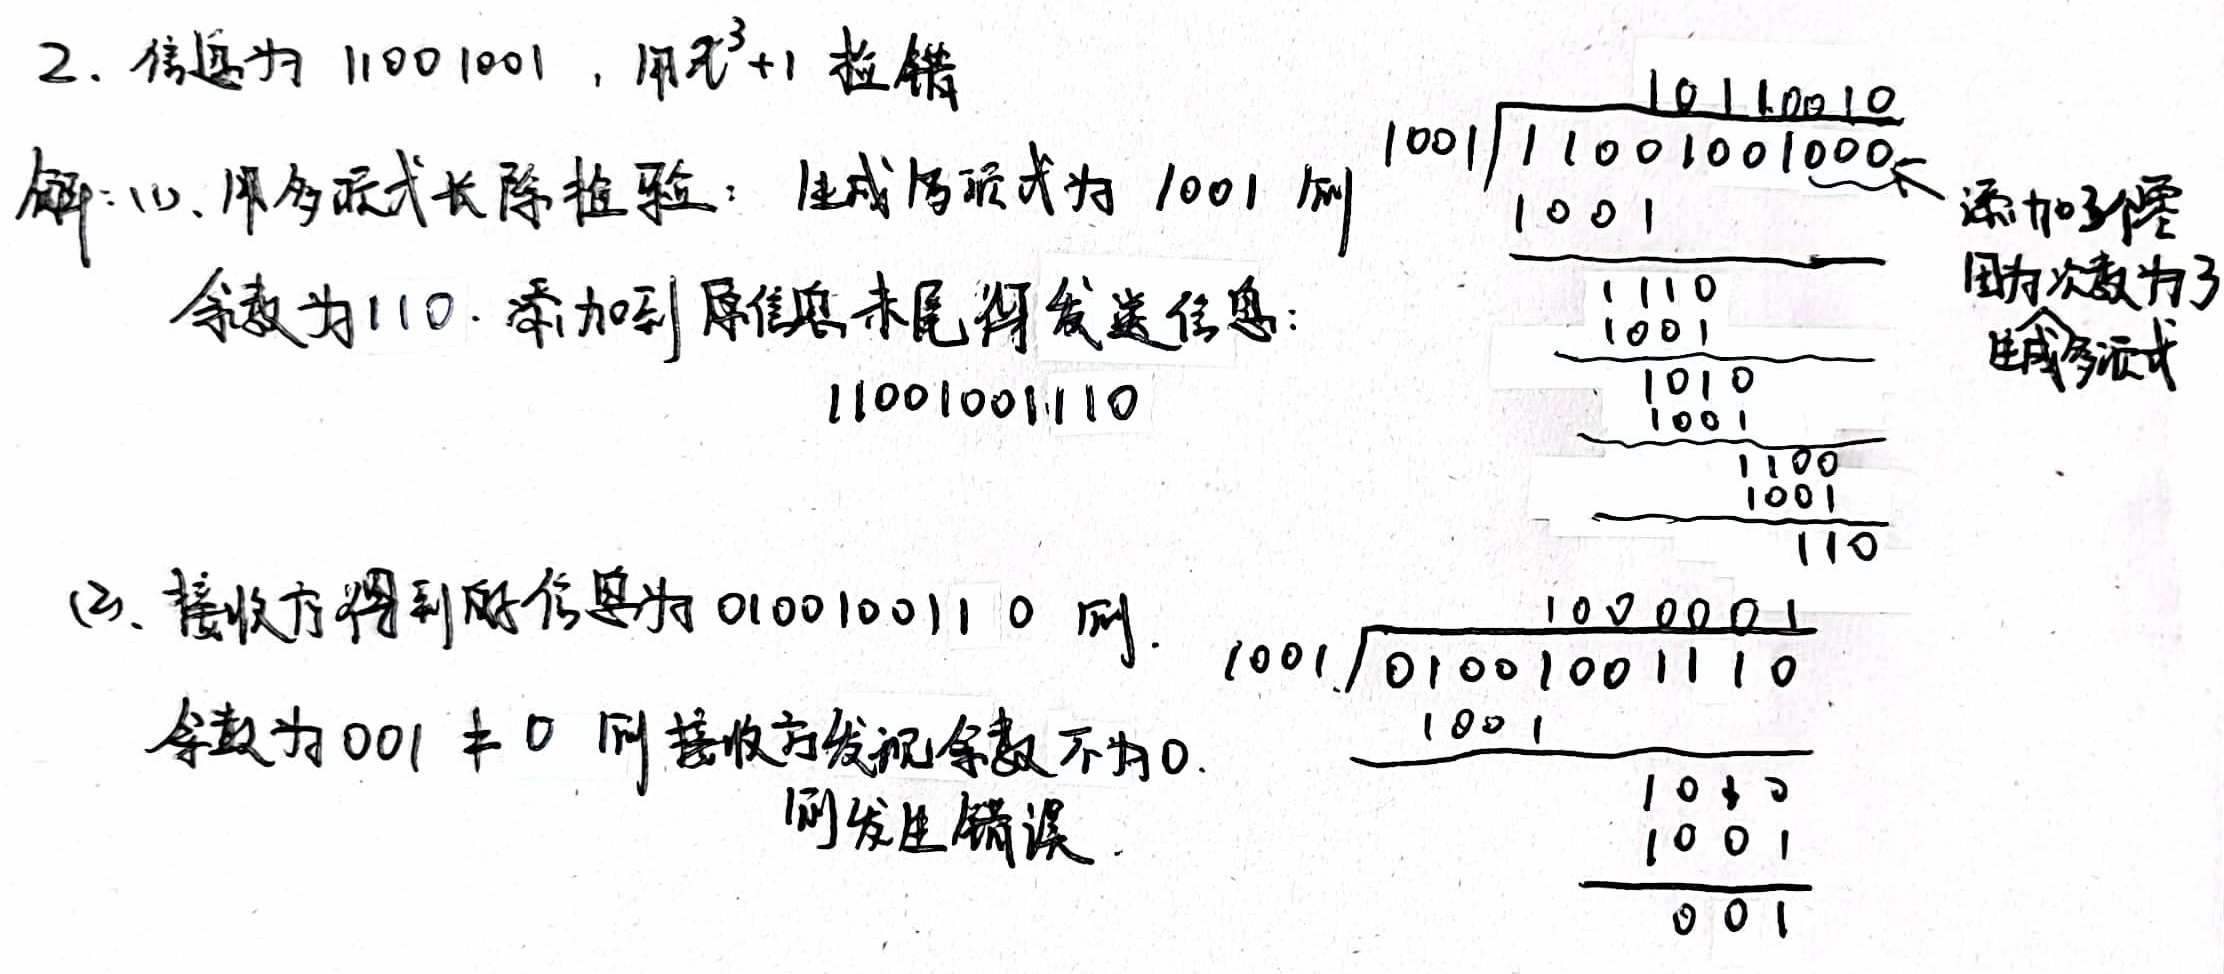 2. 信息为 11001001 , 用x³+1 检错
解: (1). 用多项式长除检验: 生成多项式为 1001 则
余数为110. 添加到原信息末尾得发送信息:
11001001110
10110010
1001 11001001000
添加3个零
因为次数为3
生成多项式
1001
1110
1001
1010
1001
1100
1001
110
(2). 接收方得到的信息为 0100100110 则.
余数为001 ≠ 0 则接收方发现余数不为0.
则发生错误.
1000001
1001 01001001110
1001
1010
1001
001